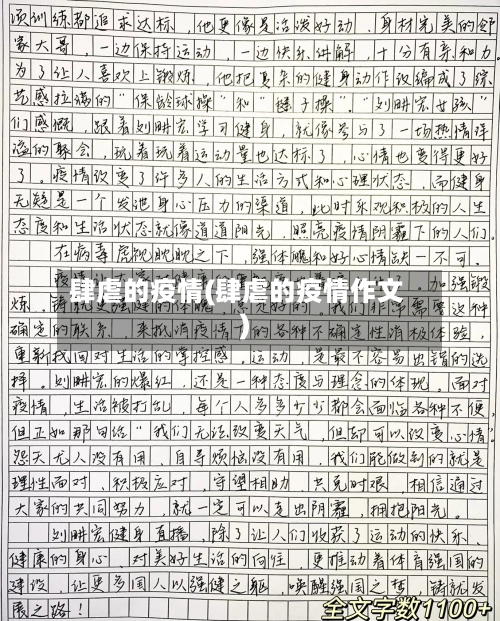 项训练都追求达标，他更像是活泼好动、身材完美的邻
家大哥，一边保持运动，一边快乐讲解，十分有亲和力。
为了让人喜欢上锻炼，他把复杂的健身动作改编成了综
艺感拉满的“保龄球操”和“毽子操”。“刘畊宏女孩”
们感慨，跟着刘畊宏学习健身，就像参与了一场热情洋
溢的聚会，玩着玩着运动量也达标了，心情也变得更好
了。疫情改变了许多人的生活方式和心理状态，而健身
无疑是一个发泄身心压力的渠道，此时乐观积极的人生
态度和生活状态就像道道阳光，照亮疫情阴霾下的人们。
在病毒虎视眈眈之下，强体魄和好心情缺一不可。
加强锻
肆虐的疫情(肆虐的疫情作文
)
炼，铸就更强健的体魄，我们非常需要这种
确定的联系，来抵消疫情下的各种不确定性消极体验，
重新找回对生活的掌控感，运动，是最不容易出错的选
择。刘畊宏的爆红，还是一种态度与理念的体现。面对
疫情，生活被打乱，每个人多多少少都会面临各种不便，
但正如那句话“我们无法改变天气，但却可以改变心情”。
怨天尤人没有用，自寻烦恼没有用，我们能做到的就是
理性面对、积极应对，守望相助、共克时艰，相信通过
大家的共同努力，就一定可以走出阴霾，拥抱阳光。
刘畊宏健身直播，除了让人们收获了运动的快乐、
健康的身心、对美好生活的向往，更推动着体育强国的
建设，让更多国人以强健之躯，唤醒强国之梦，铸就发
展之路！
全文字数1100+